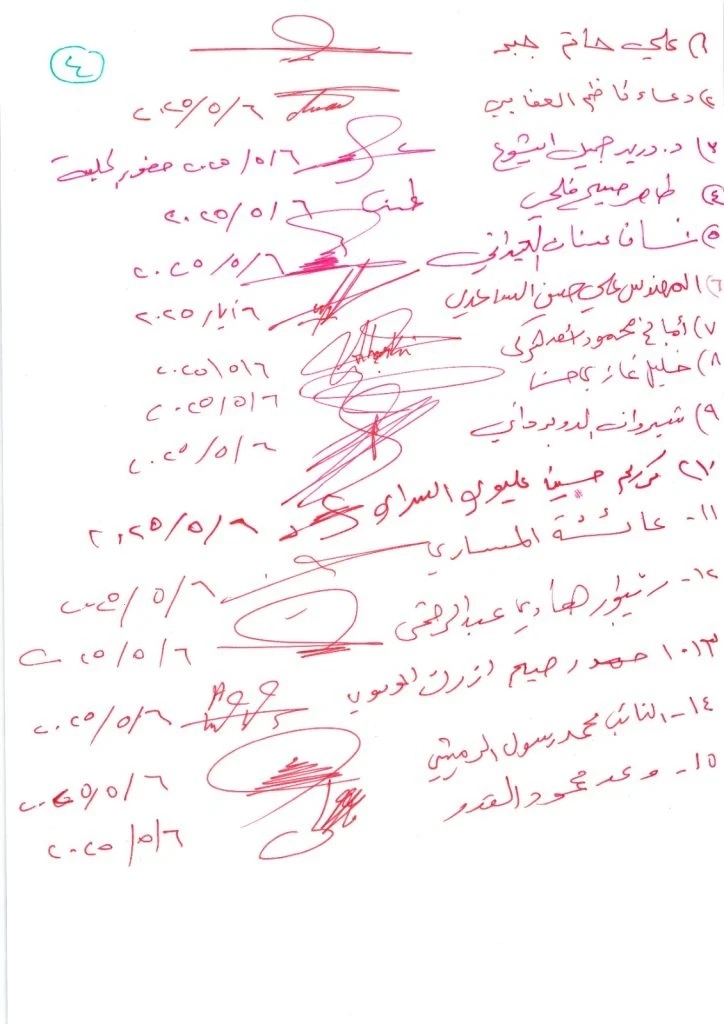 ٤
١) علي حاتم جبر
٢) دعاء كاظم ٢٠٢٥/٥/٦
٣) د. دريد جميل ايشوع ٢٠٢٥/٥/٦ حضور الجلسة
٤) طاهر ٢٠٢٥/٥/٦
٥) العيداني ٢٠٢٥/٥/٦
٦) المهندس علي حسن الساعدي ٦/أيار/٢٠٢٥
٧) محمود ٢٠٢٥/٥/٦
٨) خليل غازي ٢٠٢٥/٥/٦
٩) شيروان الدوبرداني ٢٠٢٥/٥/٦
١٠) كريم حسين عليوي السراي ٢٠٢٥/٥/٦
١١- عائشة المساري ٢٠٢٥/٥/٦
١٢- ريبوار هادي عبدالرحمن ٢٠٢٥/٥/٦
١٣- رحيم ازرق ٢٠٢٥/٥/٦
١٤- النائب محمد رسول ٢٠٢٥/٥/٦
١٥- وعد محمود القدو ٢٠٢٥/٥/٦